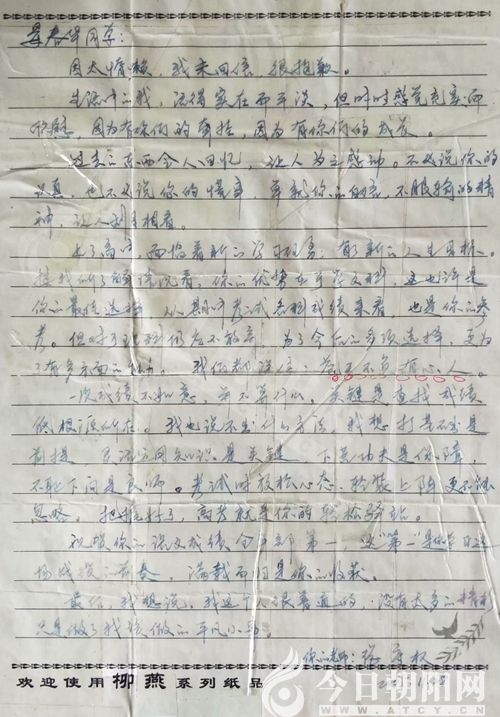 同学：
因太懒，我未回信，很抱歉。
生活中的我，活得实在而平淡，但时时感觉充实而
欣慰，因为有你们的牵挂，因为有你们的成长。
过去的东西令人回忆，让人为之感动。不必说你的
认真，也不必说你的懂事，单就你的，不服输的精
神，让人刮目相看。
上了高中，面临着新的学习任务，有了新的人生目标。
据我所了解情况看，你的优势在于文科，这也许是
你的最佳选择，从期中考试各科成绩来看，也是你的参
考。但对于理科仍应不放弃，为了今后的多项选择，更为
了有多方面的能力。我们都深信：苍天不负有心人。
一次成绩不如意，并不算什么，关键是查找成绩
的根源所在。我也说不出什么方法，我想打基础是
前提，灵活运用知识是关键，下苦功夫是保障，
不耻下问是良师。考试时放松心态，轻装上阵更不能
忽略。把握好了，高考就是你的
祝贺你的语文成绩全部第一，这“第一”是你学习
场成功的前奏，满载而归是你的收获。
最后，我想说，我这个人很普通的，没有太多的精彩
只是做了我该做的平凡小事。
你的老师：张
欢迎使用柳燕系列纸品
今日朝阳网
WWW.ATCY.CN